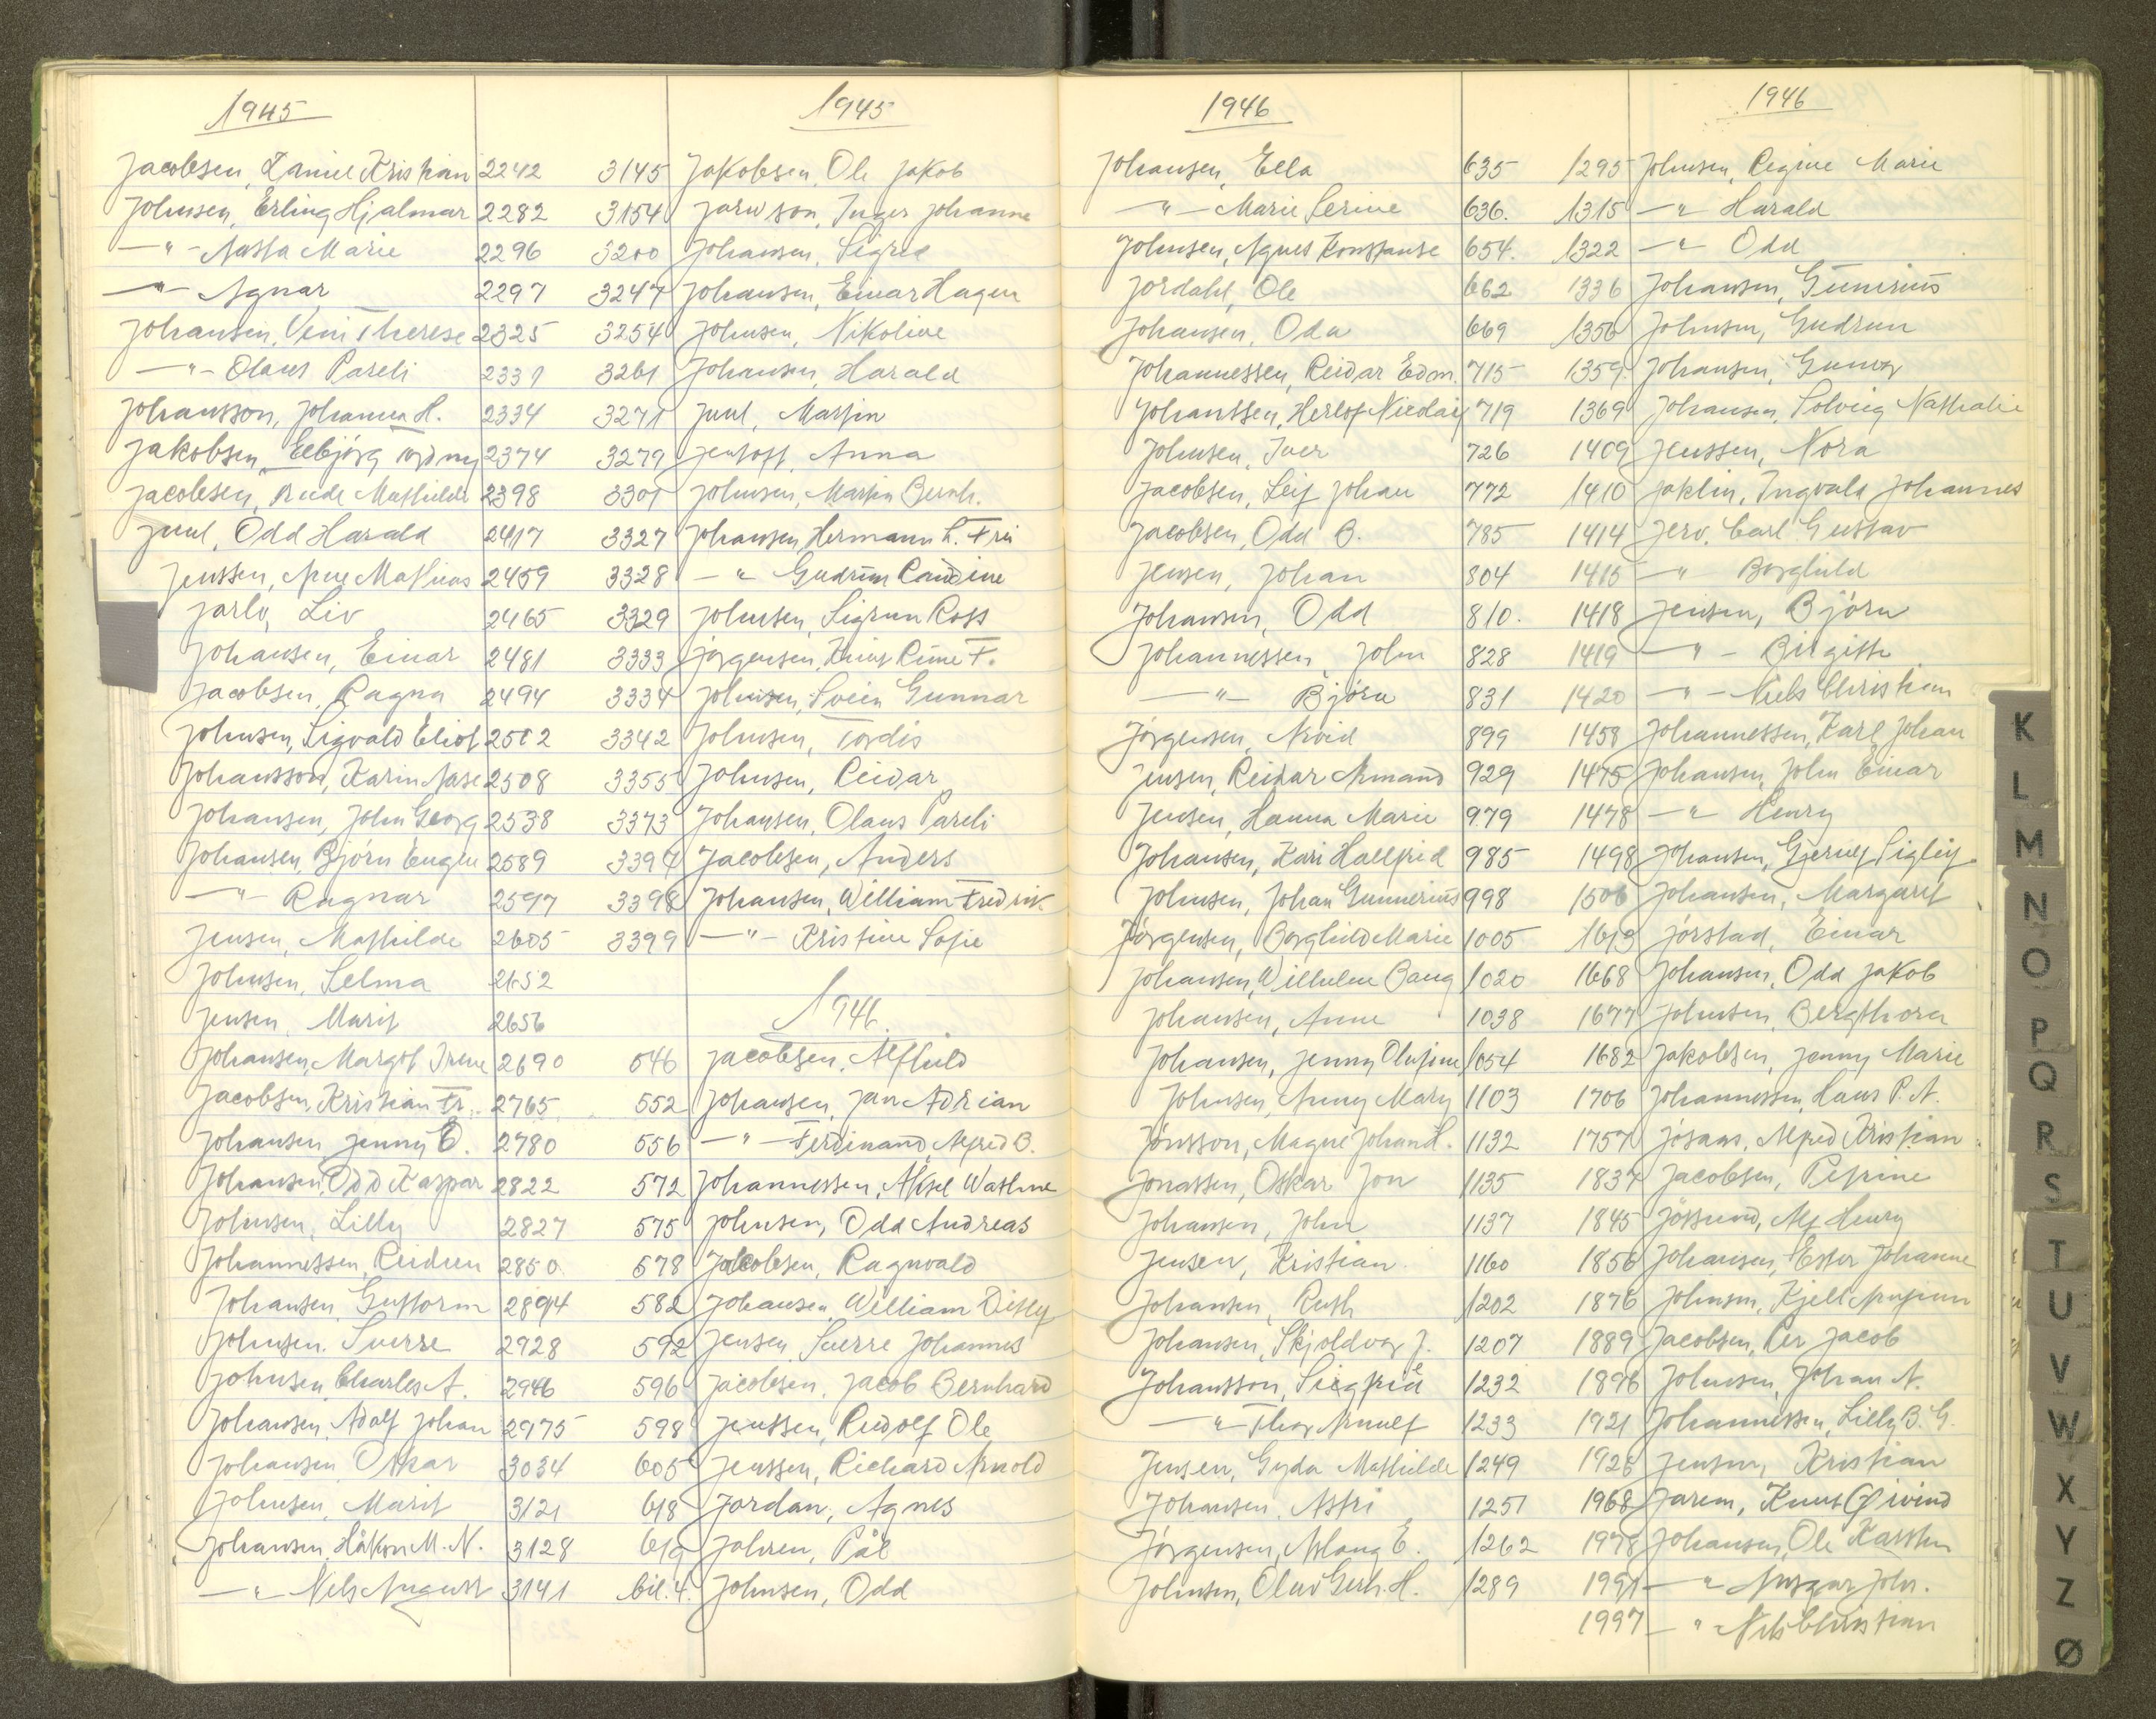 1945
Jacobsen, Daniel Kristian 2242
Johnsen, Erling Hjalmar 2282
—"— Aasta Marie 2296
—"— Agnar 2297
Johansen, Veni Therese 2325
—"— Olaus Pareli 2331
Johansson, Johanna H. 2334
Jakobsen, Eebjörg Tordny 2374
Jacobsen, Mathilde 2398
Juul, Odd Harald 2417
Jenssen, Arne Mathias 2459
Jarlo, Liv 2465
Johansen, Einar 2481
Jacobsen, Ragna 2494
Johnsen, Sigvald Eliot 2502
Johansson, Karin Aase 2508
Johansen, John Georg 2538
Johansen, Björn Eugen 2589
—"— Ragnar 2597
Jensen, Mathilde 2605
Johnsen, Selma 2652
Jensen, Marit 2656
Johansen, Margot Irene 2690
Jacobsen, Kristian Fr. 2765
Johansen, Jenny O. 2780
Johansen, Odd Kaspar 2822
Johnsen, Lilly 2827
Johannessen, Reidun 2850
Johansen, Guttorm 2894
Johnsen, Sverre 2928
Johnsen, Charles A. 2946
Johansen, Adolf Johan 2975
Johansen, Oskar 3034
Johnsen, Marit 3121
Johansen, Håkon M. N. 3128
—"— Nels August 3141
1945
3145 Jakobsen, Ole Jakob
3154 Jarwson, Inger Johanne
3200 Johansen, Sigrid
3247 Johansen, Einar Hagen
3254 Johnsen, Nikoline
3261 Johansen, Harald
3271 Juul, Martin
3279 Jentoft, Anna
3301 Johnsen, Martin Bernh.
3327 Johansen, Hermann L. Fri
3328 —"— Gudrun Randine
3329 Johnsen, Sigrun Ross
3333 Jörgensen, Knut Rune F.
3334 Johnsen, Svein Gunnar
3342 Johnsen, Tordis
3355 Johnsen, Reidar
3373 Johansen, Olaus Pareli
3394 Jacobsen, Anders
3398 Johansen, William Fredrik
3399 —"— Kristine Sofie
1946.
546 Jacobsen, Alfhild
552 Johansen, Jan Adrian
556 —"— Ferdinand Alfred B.
572 Johannessen, Aksel Wathne
575 Johnsen, Odd Andreas
578 Jacobsen, Ragnvald
582 Johansen, William Ditlef
592 Jensen, Sverre Johannes
596 Jacobsen, Jacob Bernhard
598 Jenssen, Rudolf Ole
605 Jenssen, Richard Arnold
618 Jordan, Agnes
619 Jahren, Pål
bil. 4. Johnsen, Odd
1946
Johansen, Ella 635
—"— Marie Serine 636.
Johnsen, Agnes Konstanse 654.
Jordahl, Ole 662
Johansen, Oda 669
Johannessen, Reidar Edm. 715
Johanssen, Herlof Nicolai 719
Johnsen, Iver 726
Jacobsen, Leif Johan 772
Jacobsen, Odd B. 785
Jensen, Johan 804
Johansen, Odd 810.
Johannessen, John 828
—"— Björn 831
Jörgensen, Arvid 899
Jensen, Reidar Armand 929
Jensen, Hanna Marie 979
Johansen, Kari Hallfrid 985
Johnsen, Johan Gunnerius 998
Jörgensen, Borghild Marie 1005
Johansen, Wilhelm Baug 1020
Johansen, Anne 1038
Johansen, Jenny Olufine 1054
Johnsen, Anny Mary 1103
Jónsson, Magne Johan H. 1132
Jonassen, Oskar Jon 1135
Johansen, John 1137
Jensen, Kristian 1160
Johansen, Ruth 1202
Johansen, Skjoldvor J. 1207
Johansson, Siegfrid 1232
—"— Thor Arnulf 1233
Jensen, Gyda Mathilde 1249
Johansen, Astri 1251
Jörgensen, Aslaug E. 1262
Johnsen, Oluv Gerh. H. 1289
1946
1295 Johnsen, Regine Marie
1315 —"— Harald
1322 —"— Odd
1336 Johansen, Gunerius
1356 Johnsen, Gudrun
1359 Johansen, Gunvor
1369 Johansen, Solveig Nathalie
1409 Jenssen, Nora
1410 Jaklin, Ingvald Johannes
1414 Jerv, Carl Gustav
1415 —"— Borghild
1418 Jensen, Björn
1419 —"— Birgitte
1420 —"— Niels Christian
1459 Johannessen, Karl Johan
1475 Johansen, John Einar
1478 —"— Henry
1498 Johansen, Gjerulf Sigleif
1506 Johansen, Margarit
1613 Jörstad, Einar
1668 Johansen, Odd Jakob
1677 Johnsen, Bergthora
1682 Jakobsen, Jenny Marie
1706 Johannessen, Hans P. A.
1757 Jösaas, Alfred Kristian
1837 Jacobsen, Petrine
1845 Jössund, Alf Henry
1856 Johansen, Ester Johanne
1876 Johnsen, Kjell Arnfinn
1889 Jacobsen, Per Jacob
1896 Johnsen, Johan A.
1921 Johannessen, Lilly B. G.
1926 Jensen, Kristian
1968 Jarem, Knut Øivind
1978 Johansen, Ole Karsten
1991 —"— Ansgar Joh.
1997 —"— Nils Christian
K
L
M
N
O
P
Q
R
S
T
U
V
W
X
Y
Z
Ø